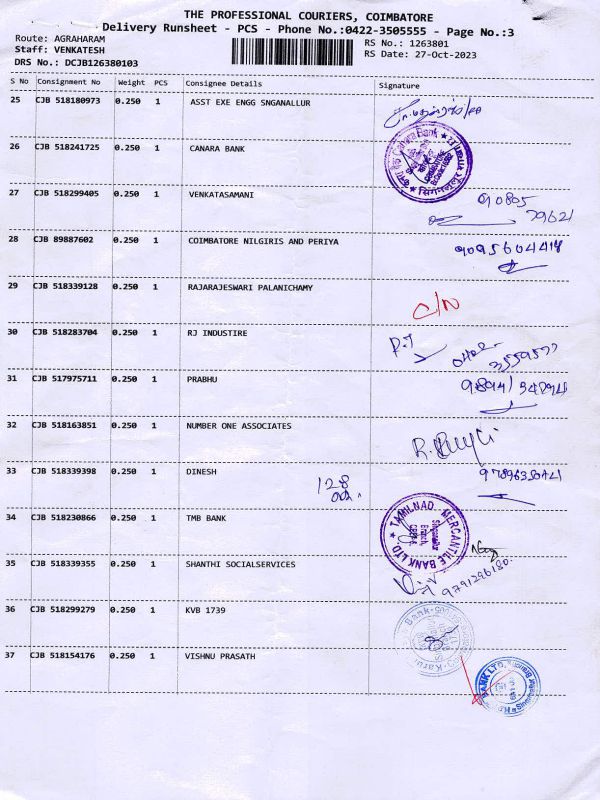 THE PROFESSIONAL COURIERS, COIMBATORE
Delivery Runsheet - PCS - Phone No.:0422-3505555 - Page No.:3
Route: AGRAHARAM
RS No.: 1263801
Staff: VENKATESH
RS Date: 27-Oct-2023
DRS No.: DCJB126380103
S No Consignment No Weight PCS Consignee Details Signature
25 CJB 518180973 0.250 1 ASST EXE ENGG SNGANALLUR
26 CJB 518241725 0.250 1 CANARA BANK
Canara Bank
27 CJB 518299405 0.250 1 VENKATASAMANI 90805
79621
28 CJB 89887602 0.250 1 COIMBATORE NILGIRIS AND PERIYA 9095604414
29 CJB 518339128 0.250 1 RAJARAJESWARI PALANICHAMY
C/N
30 CJB 518283704 0.250 1 RJ INDUSTIRE
R.J 0422
3559577
31 CJB 517975711 0.250 1 PRABHU
32 CJB 518163851 0.250 1 NUMBER ONE ASSOCIATES
33 CJB 518339398 0.250 1 DINESH
128
34 CJB 518230866 0.250 1 TMB BANK
TAMILNAD MERCANTILE BANK LTD
Branch
35 CJB 518339355 0.250 1 SHANTHI SOCIALSERVICES
9791296180
36 CJB 518299279 0.250 1 KVB 1739
37 CJB 518154176 0.250 1 VISHNU PRASATH
BANK LTD.